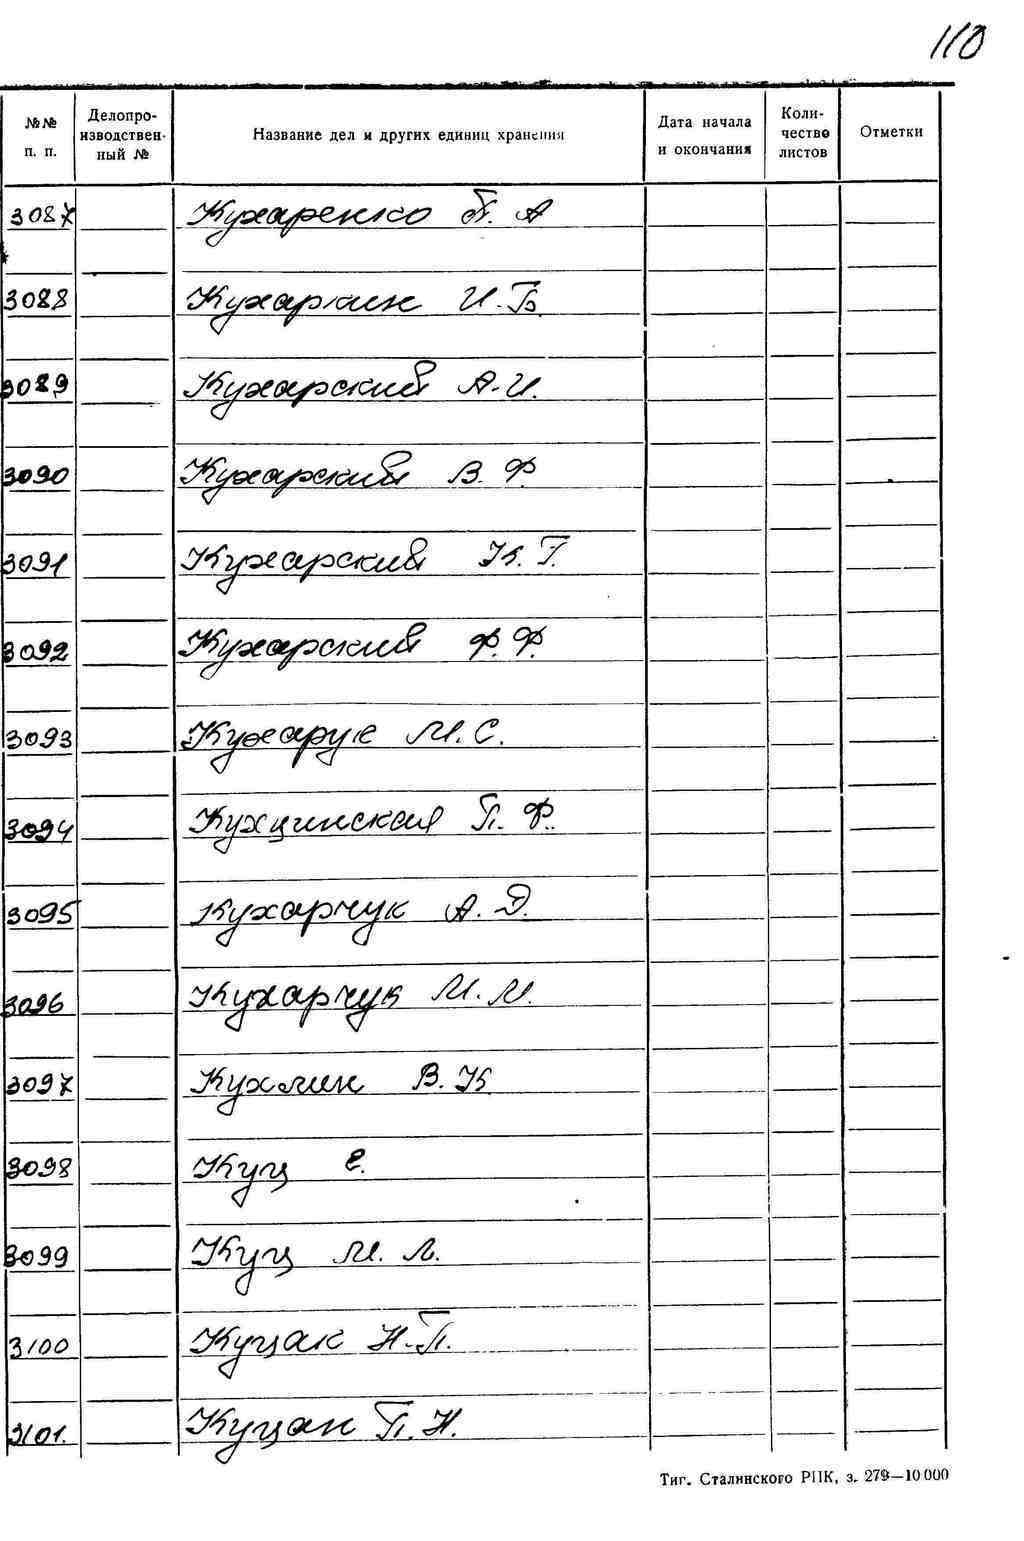 110
№№ п. п. Делопроизводствен- ный № Название дел и других единиц хранения Дата начала и окончания Коли- чество листов Отметки
3087 Кухаренко П. А
3088 Кухаркин И. Б.
3089 Кухарский А. И.
3090 Кухарский В. Ф.
3091 Кухарский К. Г.
3092 Кухарский Ф. Ф.
3093 Кухарук М. С.
3094 Кухцинская П. Ф.
3095 Кухарчук А. Д.
3096 Кухарчук М. М.
3097 Кухмин В. К.
3098 Куц Е.
3099 Куц М. Л.
3100 Куцак Н. П.
3101. Куцан П. Н.
Тиг. Сталинского РПК, з. 279—10 000